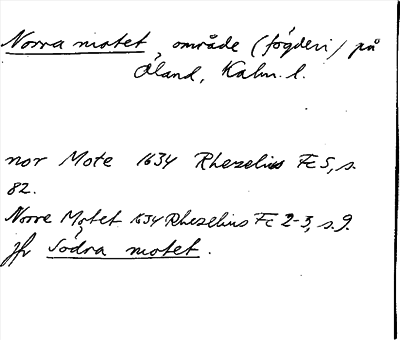 Norra motet, område (fögderi) på
Öland, Kalm. l.
nor Mote 1634 Rhezelius Fc 5, s.
82.
Norre Motet 1634 Rhezelius Fc 2-3, s. 9.
jfr Södra motet.